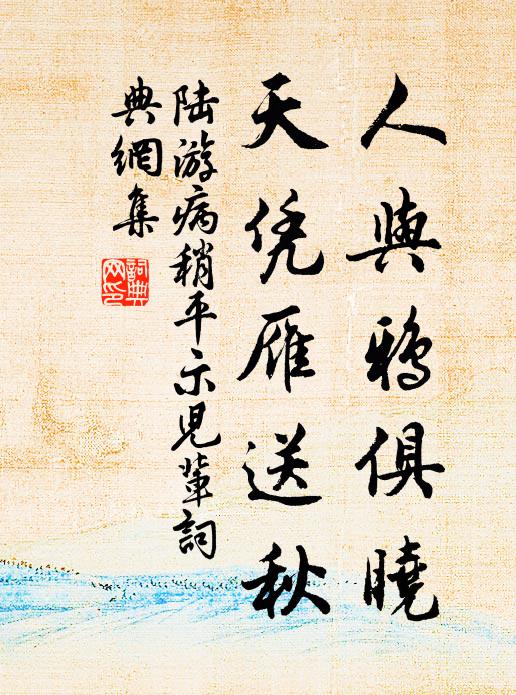 人與鴉俱曉
天凭雁送秋
陆游病稍平示児輩詞
典網集
詞典
网印